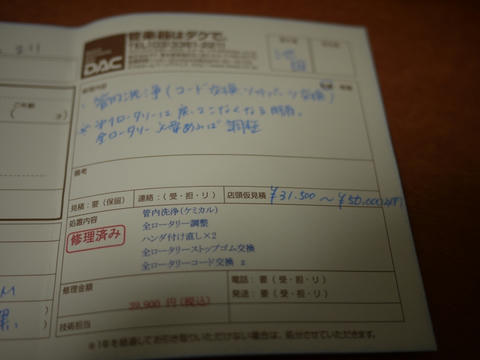 管楽器はダクで。
TEL:03(3361)2211
DAC
池田
・管内洗浄(コード交換、ソフトパーツ交換)
全ロータリー 必要あれば 調整
備考
見積:要(保留)
連絡:(受・担・リ)
店頭仮見積
¥31,500 ~ ¥50,000
処置内容
修理済み
管内洗浄(ケミカル)
全ロータリー調整
ハンダ付け直し×2
全ロータリーストップゴム交換
全ロータリーコード交換 s
修理金額
39,900 円(税込)
電話:要(受・担・リ)
発送:要(受・担・リ)
技術担当
※1年を経過してお引き取りいただけない場合は、処分させていただきます。